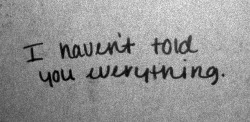 I haven't told
you everything.